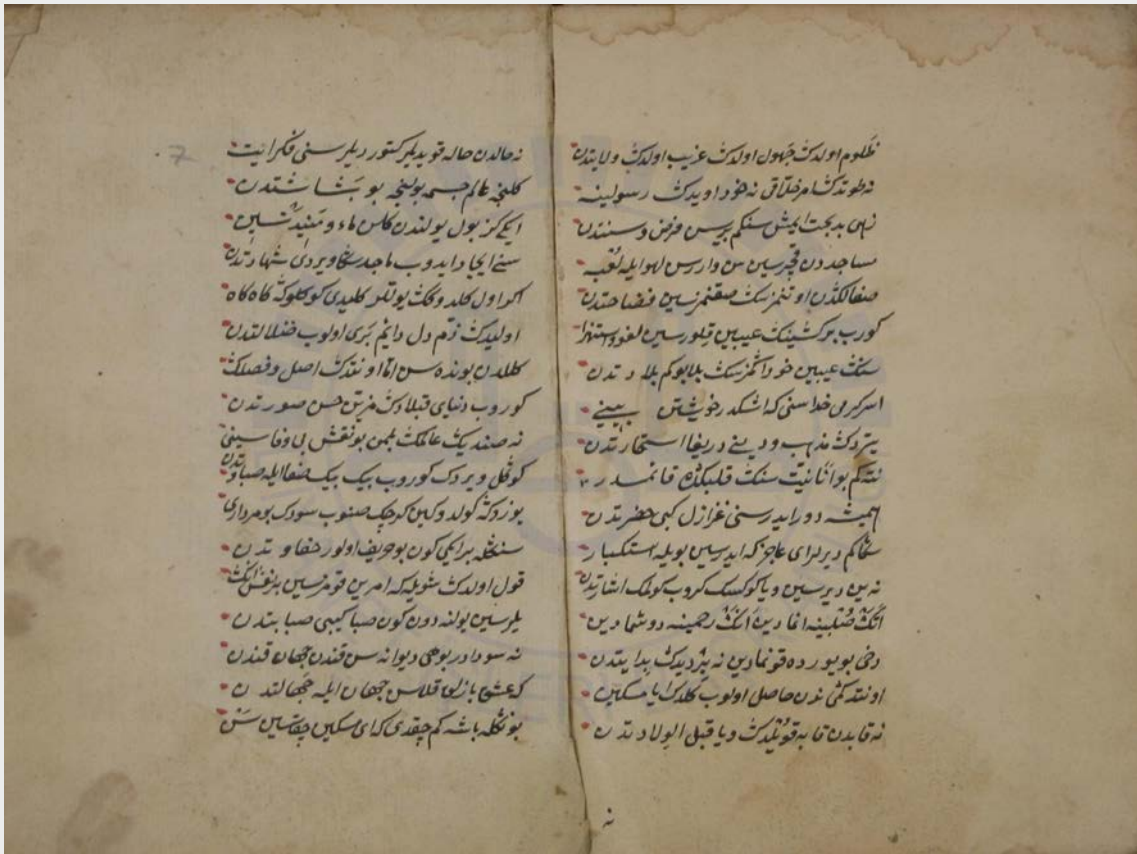 ظلوم اولدك جهول اولدك غريب اولدك ولايتدن
نه طوتدك امر خلاقى نه خود اويدك رسولينه
زهى بدبخت ايمش سنكم بيرس فرض و سنتدن
مساجددن قچرسين سن واررس لهو ايله لعبه
صفالكدن اوتنمزسك صقنمزسين فضاحتدن
كورب بركشينك عيبين قلورسين لغو و استهزا
سنك عيبين خود اكمزسك بلابوكم بلادتدن
اسركرمى خدا سنى كه اشكدر خويشتن بينى
يتردك مذهب و دينى دريغا استخارتدن
نته كم بو انانيت سنك قلبكده قائمدر
هميشه دور ايدر سنى عزازل كبى حضرتدن
سكاكم ديرلر اى عاجز كه ايدرسين بويله استكبار
نه ين ديرسين و يا كوكسك كروب كولمك اشارتدن
اتك صلبينه اغمادين انك رحمينه دوشمادين
دخى بو يورده قونمادين نه يردیدك بدايتدن
اونتدكمى ندن حاصل اولوب كلدك ايا مسكين
نه قابدن قابه قونلدك و يا قبل الولادتدن
نه
نه حالدن حاله قويديلر كتورديلر سنى فكر ايت
كلنجه عالم جسمه بولنجه بو بشاشتدن
ايكى كز بول يولندن كاس ماء و
سنى ايجاد ايدوب ماجد سكا ويردى شهادتدن
اكر اول كلدوكك يوللر كليدى كوكلوكه كاه كاه
اولیدك ذم دل دائم برى اولوب ضلالتدن
كللدن بونده سن اما اونتدك اصل و فصلك
كوروب دنياى قبلادك مزين حسن صورتدن
نه صندیك عالمك بلمن بو نقش بى وفاسينى
كوكل ويردك كوروب بيك بيك صفا ايله صباوتدن
يوزوكه كولدوكين كرچك صنوب سودك بو مردارى
سنكله بر ايكى كون بو حريف اولور حفاوتدن
قول اولدك شويله كه امرين قومزسين بر نفس انك
يلرسين يولنه دون كون صبا كيبى صبابتدن
نه سودادر بو هى ديوانه سن قندن جهان قندن
كه عشق بازلق قلاس جهان ايله جهالتدن
بو نكله باشه كم چقدى كه اى مسكين چقاسين سن
7